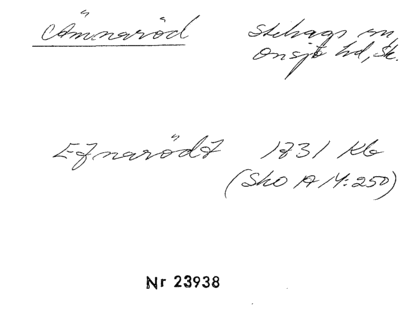 Ämnaröd Stehags sn,
Onsjö hd, Sk.
[Efnarödz] 1731 Kb
(Sko A 14:250)
Nr 23938